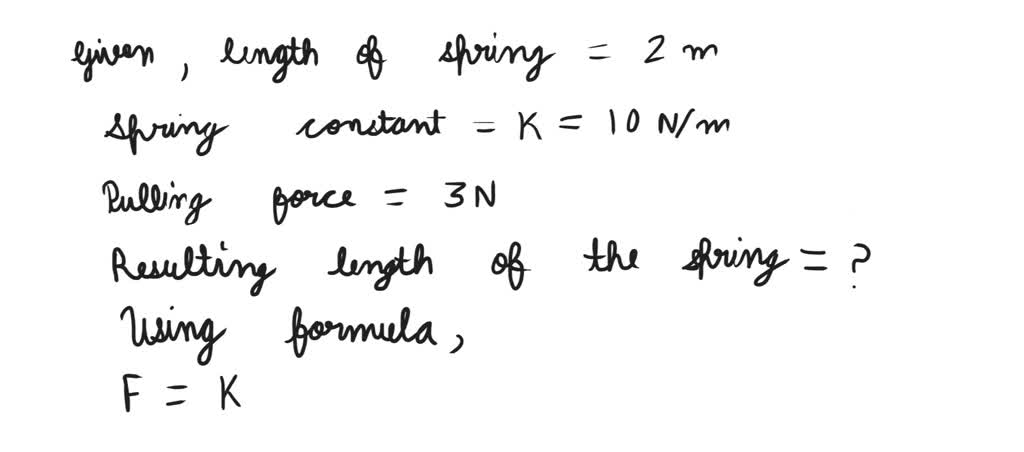 given, length of spring = 2 m
Spring constant = K = 10 N/m
Pulling force = 3N
Resulting length of the spring = ?
Using formula,
F = K